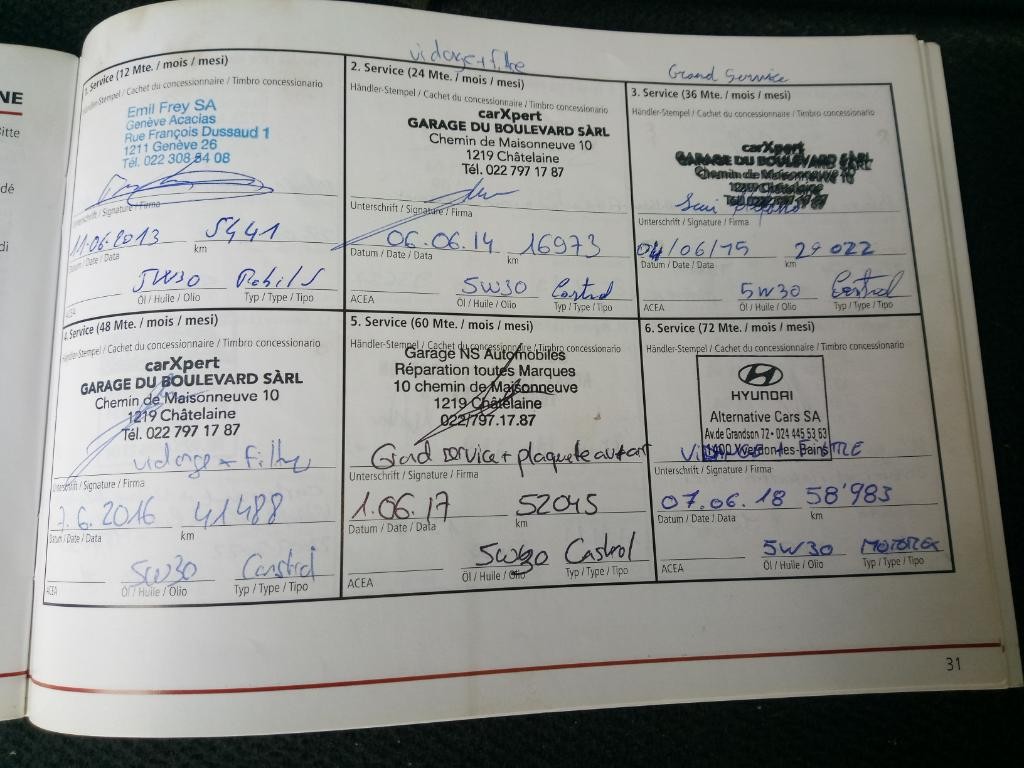 NE
Bitte
dé
di
vidange + filtre
Grand Service
1. Service (12 Mte. / mois / mesi)
Händler-Stempel / Cachet du concessionnaire / Timbro concessionario
Emil Frey SA
Genève Acacias
Rue François Dussaud 1
1211 Genève 26
Tél. 022 308 54 08
Unterschrift / Signature / Firma
11.06.2013 5441
Datum / Date / Data km
5W30
ACEA Öl / Huile / Olio Typ / Type / Tipo
2. Service (24 Mte. / mois / mesi)
Händler-Stempel / Cachet du concessionnaire / Timbro concessionario
carXpert
GARAGE DU BOULEVARD SÀRL
Chemin de Maisonneuve 10
1219 Châtelaine
Tél. 022 797 17 87
Unterschrift / Signature / Firma
06.06.14 16973
Datum / Date / Data km
5W30 Castrol
ACEA Öl / Huile / Olio Typ / Type / Tipo
3. Service (36 Mte. / mois / mesi)
Händler-Stempel / Cachet du concessionnaire / Timbro concessionario
carXpert
GARAGE DU BOULEVARD SÀRL
Chemin de Maisonneuve 10
1219 Châtelaine
Tél. 022 797 17 87
Unterschrift / Signature / Firma
04/06/15 29022
Datum / Date / Data km
5W30 Castrol
ACEA Öl / Huile / Olio Typ / Type / Tipo
4. Service (48 Mte. / mois / mesi)
Händler-Stempel / Cachet du concessionnaire / Timbro concessionario
carXpert
GARAGE DU BOULEVARD SÀRL
Chemin de Maisonneuve 10
1219 Châtelaine
Tél. 022 797 17 87
vidange + filtre
Unterschrift / Signature / Firma
7.6.2016 41488
Datum / Date / Data km
5W30 Castrol
ACEA Öl / Huile / Olio Typ / Type / Tipo
5. Service (60 Mte. / mois / mesi)
Händler-Stempel / Cachet du concessionnaire / Timbro concessionario
Garage NS Automobiles
Réparation toutes Marques
10 chemin de Maisonneuve
1219 Châtelaine
022/797.17.87
Grand service + plaquette
Unterschrift / Signature / Firma
1.06.17 52045
Datum / Date / Data km
5W30 Castrol
ACEA Öl / Huile / Olio Typ / Type / Tipo
6. Service (72 Mte. / mois / mesi)
Händler-Stempel / Cachet du concessionnaire / Timbro concessionario
HYUNDAI
Alternative Cars SA
Av. de Grandson 72 • 024 445 53 63
1400 Yverdon-les-Bains
Unterschrift / Signature / Firma
07.06.18 58'983
Datum / Date / Data km
5W30 MOTOREX
ACEA Öl / Huile / Olio Typ / Type / Tipo
31